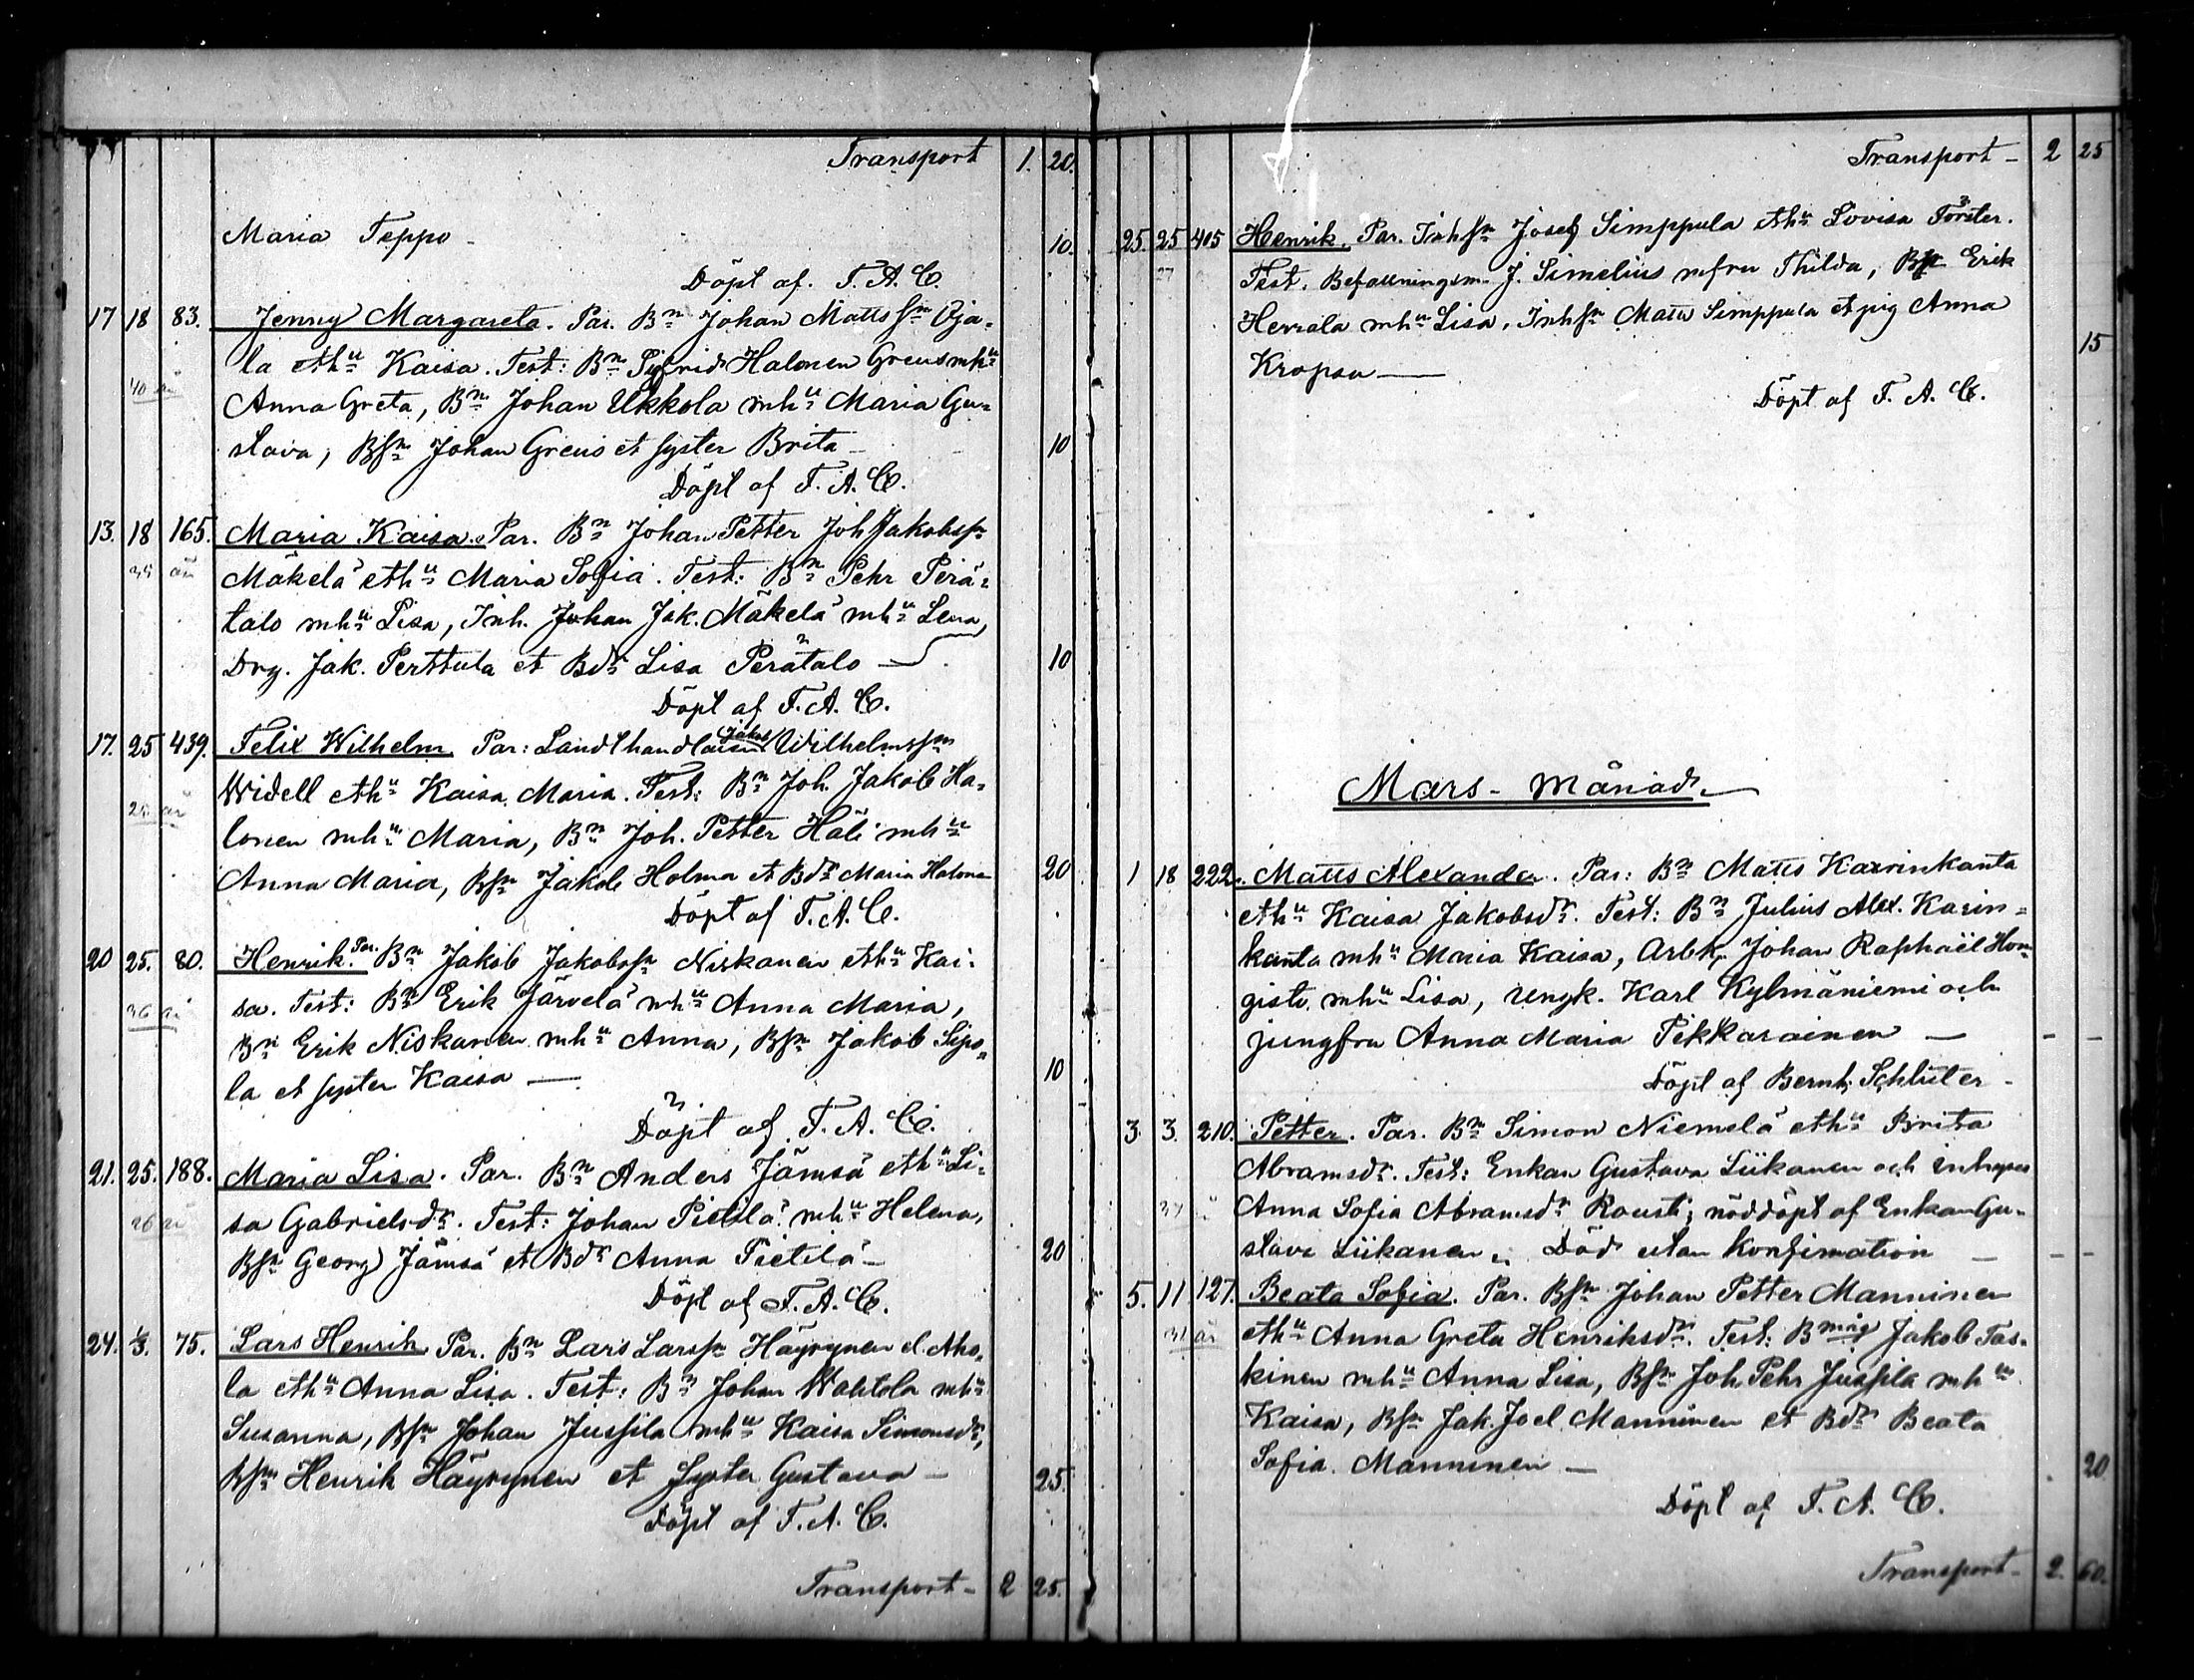 Transport 1. 20.
Maria Teppo - 10.
Döpt af. F. A. C.
17 18 83. Jenny Margareta. Par. Bn Johan Matts Sn Oja-
40 år la et hu Kaisa. Test: Bn Sigfrid Halonen Greus mhu
Anna Greta, Bn Johan Ukkola mhu Maria Gu-
stava, BSn Johan Greus et syster Brita - 10
Döpt af F. A. C.
13. 18 165. Maria Kaisa. Par. Bn Johan Petter Joh Jakobssn
35 år Mäkelä et hu Maria Sofia. Test: Bn Pehr Perä-
talo mhu Lisa, Inh. Johan Jak. Mäkelä mhu Lena,
Drg. Jak. Perttula et Bdr Lisa Perätalo 10
Döpt af F. A. C.
17. 25 439. Felix Wilhelm Par: Landthandlaren Jakob Wilhelmssn
Widell et hu Kaisa Maria. Test: Bn Joh. Jakob Ha-
25 år lonen mhu Maria, Bn Joh. Petter Häli mhu
Anna Maria, BSn Jakob Holma et Bdr Maria Halonen 20
Döpt af F. A. C.
20 25. 80. Henrik. Par. Bn Jakob Jakobssn Niskanen et hu Kai-
36 år sa. Test: Bn Erik Järvelä mhu Anna Maria,
Bn Erik Niskanen mhu Anna, BSn Jakob Sipo-
la et syster Kaisa — 10
Döpt af F. A. C.
21. 25. 188. Maria Lisa. Par. Bn Anders Jämsä et hu Li-
26 år sa Gabrielsdr. Test: Johan Pietilä mhu Helena,
BSn Georg Jämsä et Bdr Anna Pietilä - 20
Döpt af F. A. C.
24. 1/3. 75. Lars Henrik Par. Bn Lars Larssn Häyrynen el. Aho-
la et hu Anna Lisa. Test: Bn Johan Wahtola mhu
Susanna, BSn Johan Jussila mhu Kaisa Simonsdr,
BSn Henrik Häyrynen et Syster Gustava - 25.
Döpt af F. A. C.
Transport - 2 25.
Transport - 2 25
25. 25 405 Henrik. Par. Inh Sn Josef Simppula et hu Lovisa Förster.
27 Test. Befallningsm. J. Simelius m fru Thilda, BSn Erik
Herrala mhu Lisa, Inh Sn Matts Simppula et pig Anna
Kropsu — 15
Döpt af F. A. C.
Mars - Månad.
1 18 222. Matts Alexander. Par: Bn Matts Karinkanta
et hu Kaisa Jakobsdr. Test: Bn Julius Alex. Karin-
kanta mhu Maria Kaisa, Arbk. Johan Raphaël Hon-
gisto mhu Lisa, ungk. Karl Kylmäniemi och
jungfru Anna Maria Pikkarainen — - -
Döpt af Bernh. Schlüter -
3. 3. 210. Petter. Par. Bn Simon Niemelä et hu Brita
Abramsdr. Test: Enkan Gustava Liikanen och
Anna Sofia Abramsdr Rousti; nöddöpt af Enkan Gu-
stava Liikanen. Död utan Konfirmation — - -
5. 11 127. Beata Sofia. Par. BSn Johan Petter Manninen
31 år et hu Anna Greta Henriksdr. Test: Bmåg Jakob Tas-
kinen mhu Anna Lisa, BSn Joh Pehr Jussila mhu
Kaisa, BSn Jak. Joel Manninen et Bdr Beata
Sofia Manninen — 20
Döpt af F. A. C.
Transport - 2. 60.